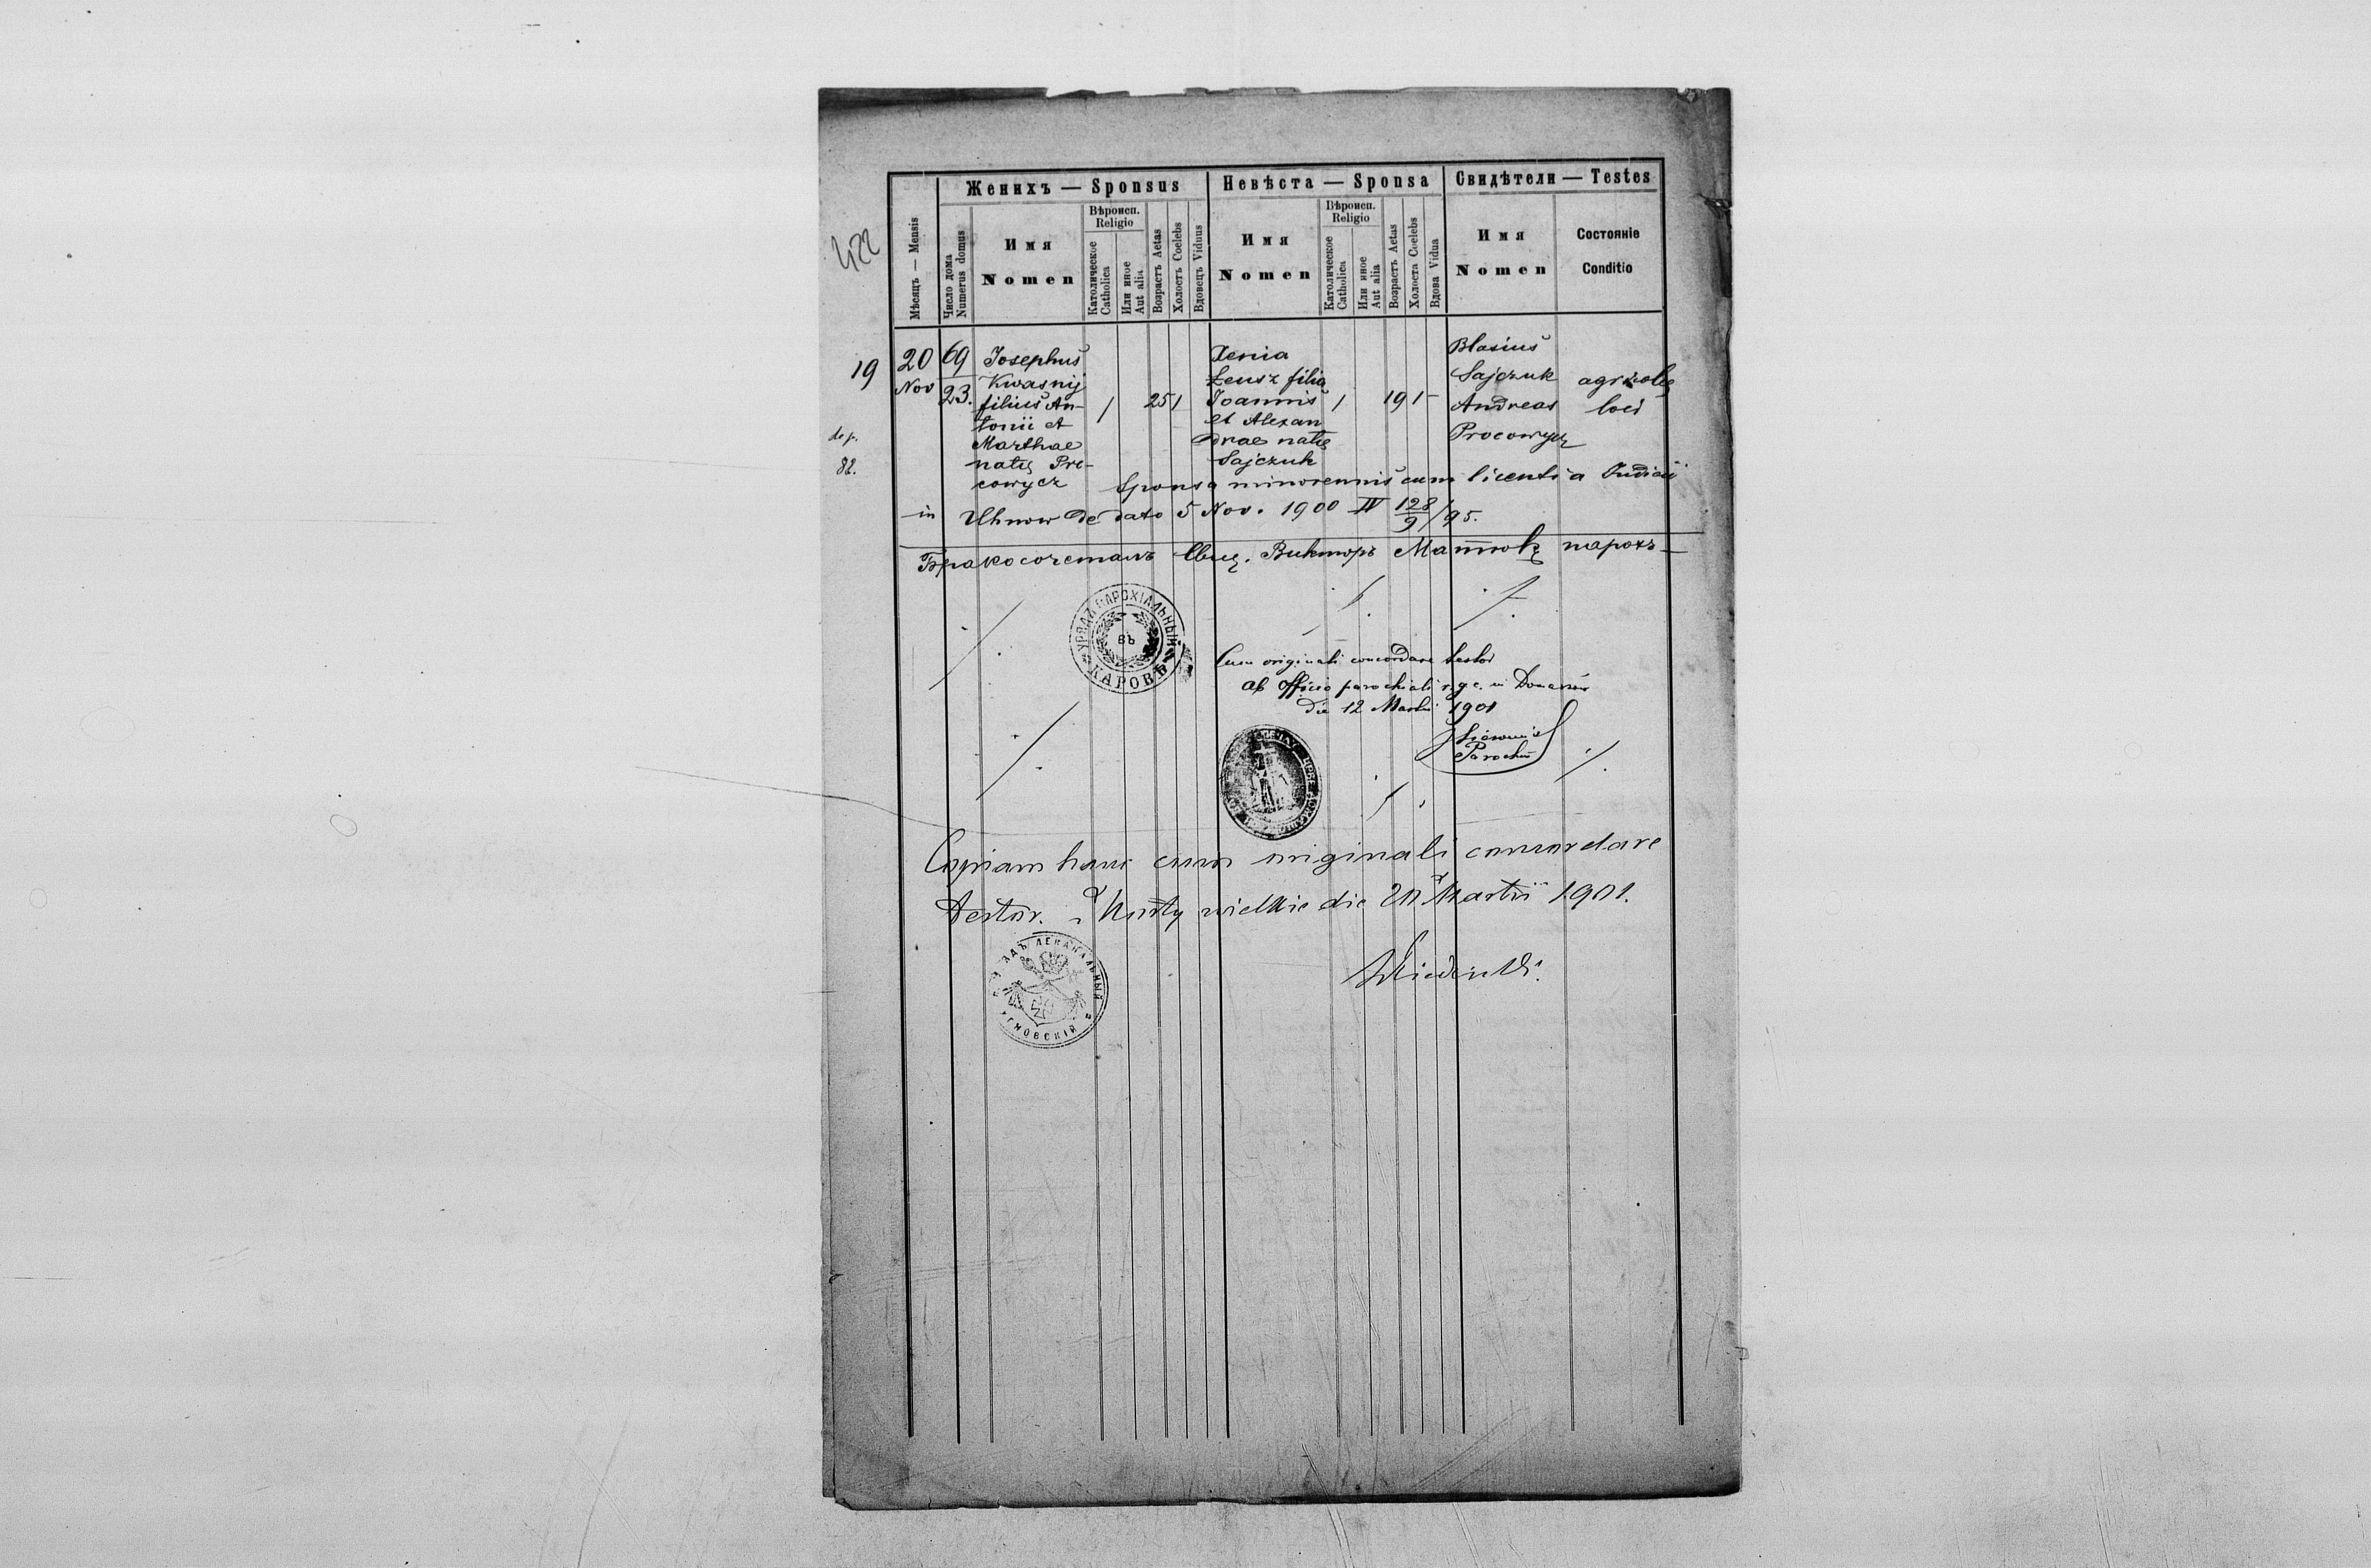 Женихъ — Sponsus
Невѣста — Sponsa
Свидѣтели — Testes
Мѣсяцъ — Mensis
Число дома
Numerus domus
Имя
Nomen
Вѣроисп.
Religio
Католическое
Catholica
Или иное
Aut alia
Возрастъ Aetas
Холостъ Coelebs
Вдовецъ Viduus
Имя
Nomen
Вѣроисп.
Religio
Католическое
Catholica
Или иное
Aut alia
Возрастъ Aetas
Холоста Coelebs
Вдова Vidua
Имя
Nomen
Состояніе
Conditio
422
19
dep.
82.
20
Nov
69
23.
Josephus
Kwasnij
filius An-
tonii et
Marthae
natę Pro-
cowycz
1
25
1
Xenia
Leusz filia
Joannis
et Alexan
drae natę
Sajczuk
1
19
1
Blasius
Sajczuk
Andreas
Procowycz
agricolę
loci
Sponsa minorennis cum licentia Judicii
in Uhnow de dato 5 Nov. 1900 IV 128/9/95.
Бракосочеталъ Свщ. Викторъ парохъ
УРЯДЪ ПАРОХІАЛЬНЫЙ
ВЪ
КАРОВѢ
Cum originali concordare testor
ab officio parochiali r. g. c. in
die 12 Martii 1901
Parochus
Copiam hanc cum originali concordare
testor. wielkie die 20 Martii 1901.
УРЯДЪ ДЕКАНАЛЬНЫЙ
УГНОВСКІЙ